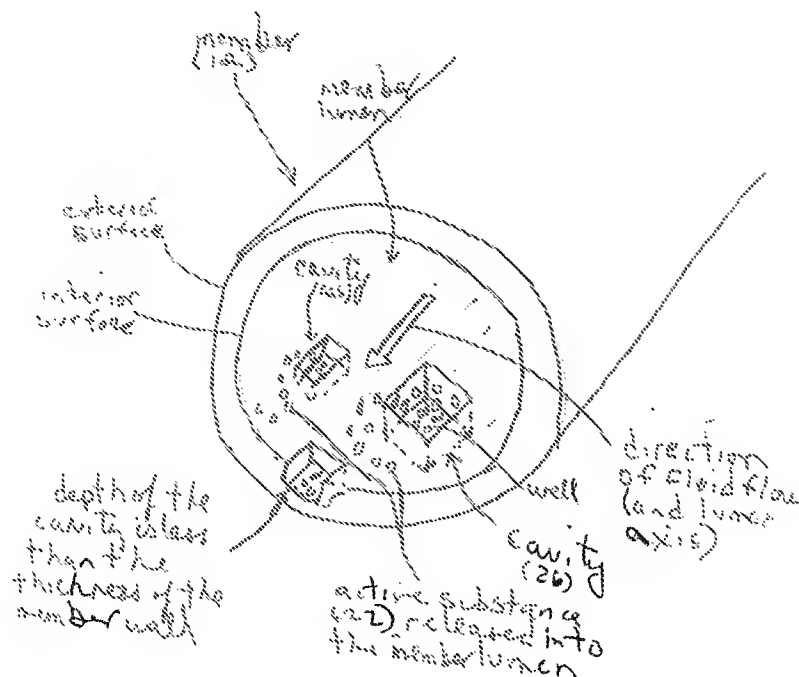 member
(12)
member
lumen
exterior
surface
interior
surface
cavity
direction
of fluid flow
(and lumen
axis)
well
cavity
(26)
depth of the
cavity is less
than the
thickness of the
member wall
active substance
(22) released into
the member lumen